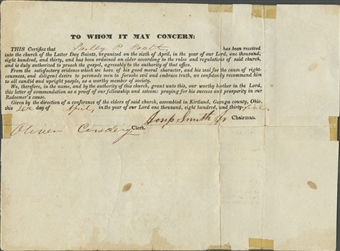 TO WHOM IT MAY CONCERN:
THIS Certifies that Parley P. Pratt has been received
into the church of the Latter Day Saints, organized on the sixth of April, in the year of our Lord, one thousand,
eight hundred, and thirty, and has been ordained an elder according to the rules and regulations of said church,
and is duly authorized to preach the gospel, agreeably to the authority of that office.
From the satisfactory evidence which we have of his good moral character, and his zeal for the cause of right-
eousness, and diligent desire to persuade men to forsake evil and embrace truth, we confidently recommend him
to all candid and upright people, as a worthy member of society.
We, therefore, in the name, and by the authority of this church, grant unto this, our worthy brother in the Lord,
this letter of commendation as a proof of our fellowship and esteem: praying for his success and prosperity in our
Redeemer's cause.
Given by the direction of a conference of the elders of said church, assembled in Kirtland, Geauga county, Ohio,
this day of April in the year of our Lord, one thousand, eight hundred, and thirty
Joseph Smith Jr Chairman.
Oliver Cowdery Clerk.